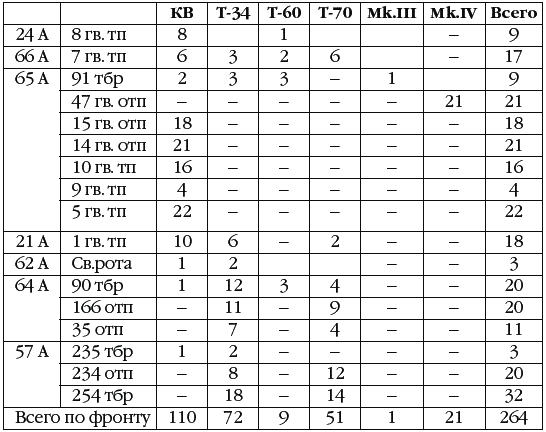 КВ Т-34 Т-60 Т-70 Mk.III Mk.IV Всего
24 А 8 гв. тп 8 1 – 9
66 А 7 гв. тп 6 3 2 6 – 17
65 А 91 тбр 2 3 3 – 1 9
47 гв. отп – – – – – 21 21
15 гв. отп 18 – – – – – 18
14 гв. отп 21 – – – – – 21
10 гв. тп 16 – – – – – 16
9 гв. тп 4 – – – – – 4
5 гв. тп 22 – – – – – 22
21 А 1 гв. тп 10 6 – 2 – – 18
62 А Св.рота 1 2 – – 3
64 А 90 тбр 1 12 3 4 – – 20
166 отп – 11 – 9 – – 20
35 отп – 7 – 4 – – 11
57 А 235 тбр 1 2 – – – – 3
234 отп – 8 – 12 – – 20
254 тбр – 18 – 14 – – 32
Всего по фронту 110 72 9 51 1 21 264